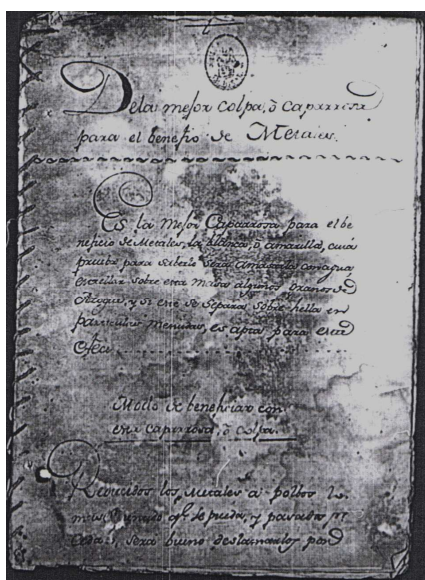 De la mejor Colpa, ò Caparrosa
para el benefio de Metales.
Es la mejor Caparrosa para el be
neficio de Metales, la blanca, ò amarilla, cuia
prueba para saberla será amasarla con agua
sobre esta masa algunos granos de
Azogue, y si este se separa sobre hella en
particulas menudas, es apta para este
Modo de beneficiar con
esta caparrosa, ò colpa.
Reducidos los Metales à polbos lo
mas menudo qe. se pueda, y pasados pr.
será bueno